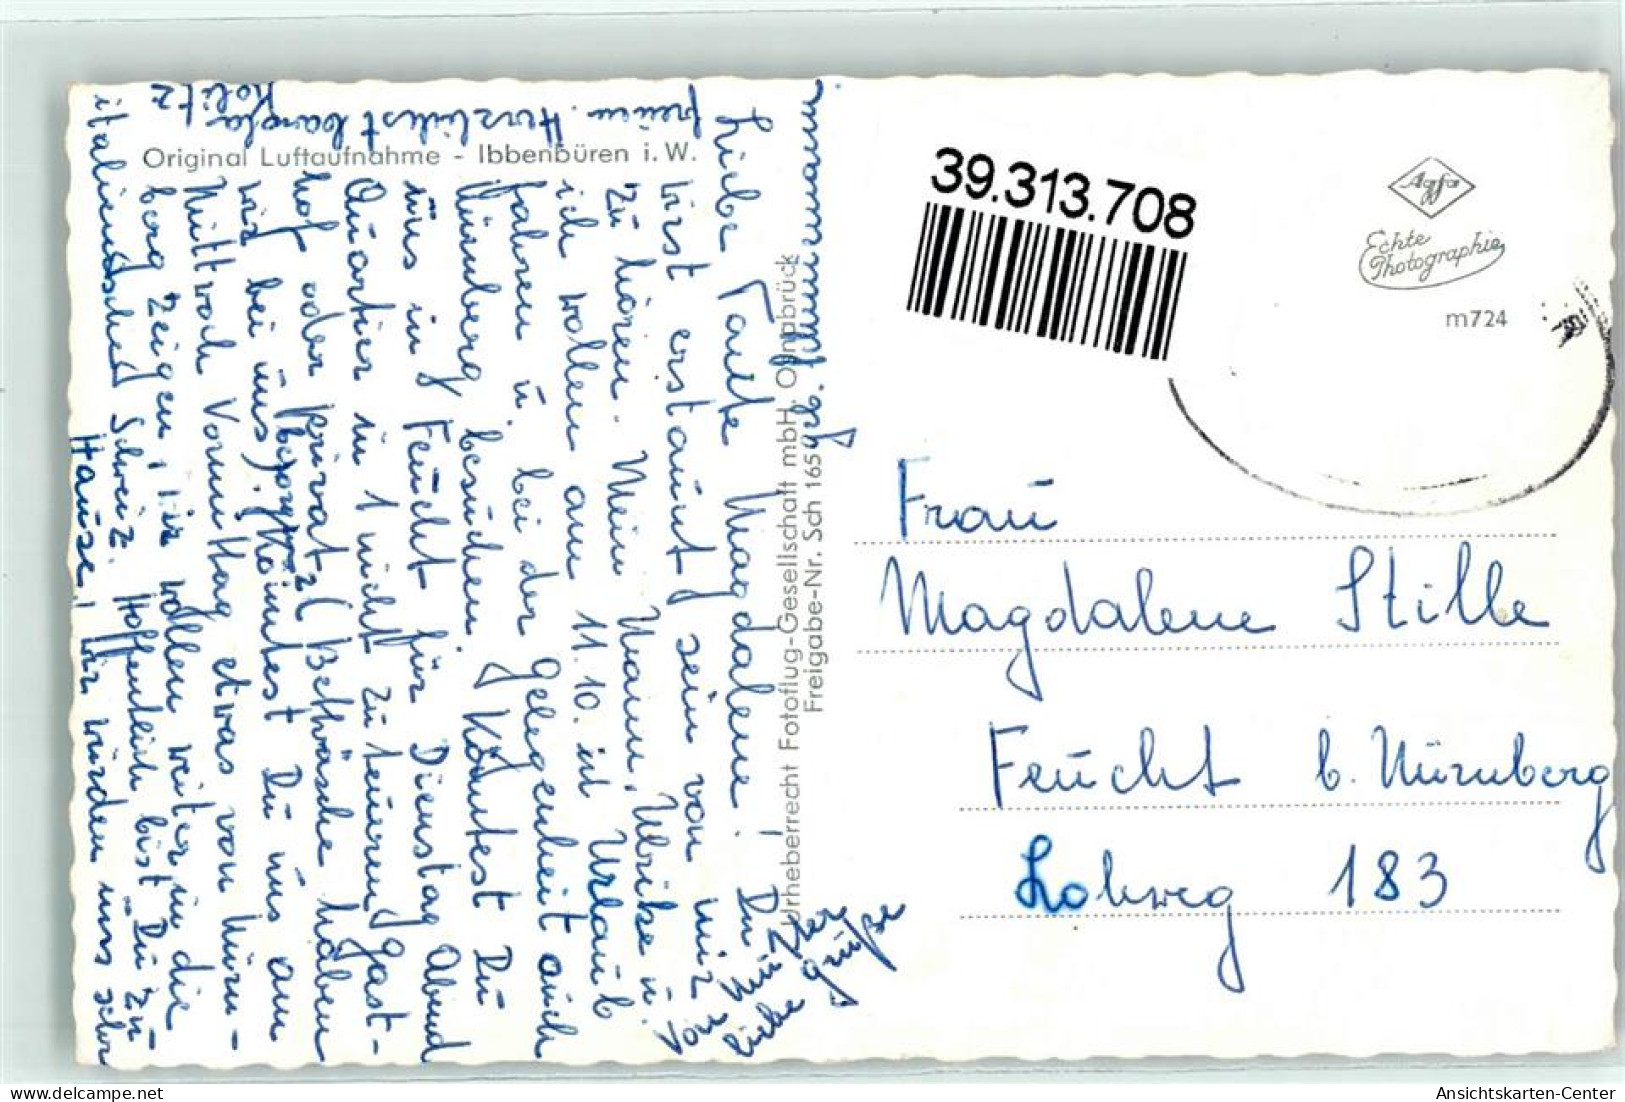 Original Luftaufnahme - Ibbenbüren i. W.
Liebe Tante Magdalene! Du
wirst erstaunt sein von mir
zu hören. Mein Mann, Ulrike u.
ich wollen am 11.10. in Urlaub
fahren u. bei der Gelegenheit auch
Nürnberg besuchen. Könntest Du
uns in Feucht für Dienstag Abend
Quartier in 1 nicht zu teuren Gast-
hof oder privat (Bettwäsche haben
wir bei uns) Könntest Du uns am
Mittwoch Vormittag etwas von Nürn-
berg zeigen, wir wollen weiter in die
italienische Schweiz. Hoffentlich bist Du zu
Hause! Wir würden uns sehr
freuen. Herzlichst
Kolitz
Liebe Grüße
Urheberrecht Fotoflug-Gesellschaft mbH. Osnabrück
Freigabe-Nr. Sch
39.313.708
Agfa
Echte
Photographie
m724
Frau
Magdalene Stille
Feucht b. Nürnberg
Lohweg 183
Ansichtskarten-Center
oldthing.de